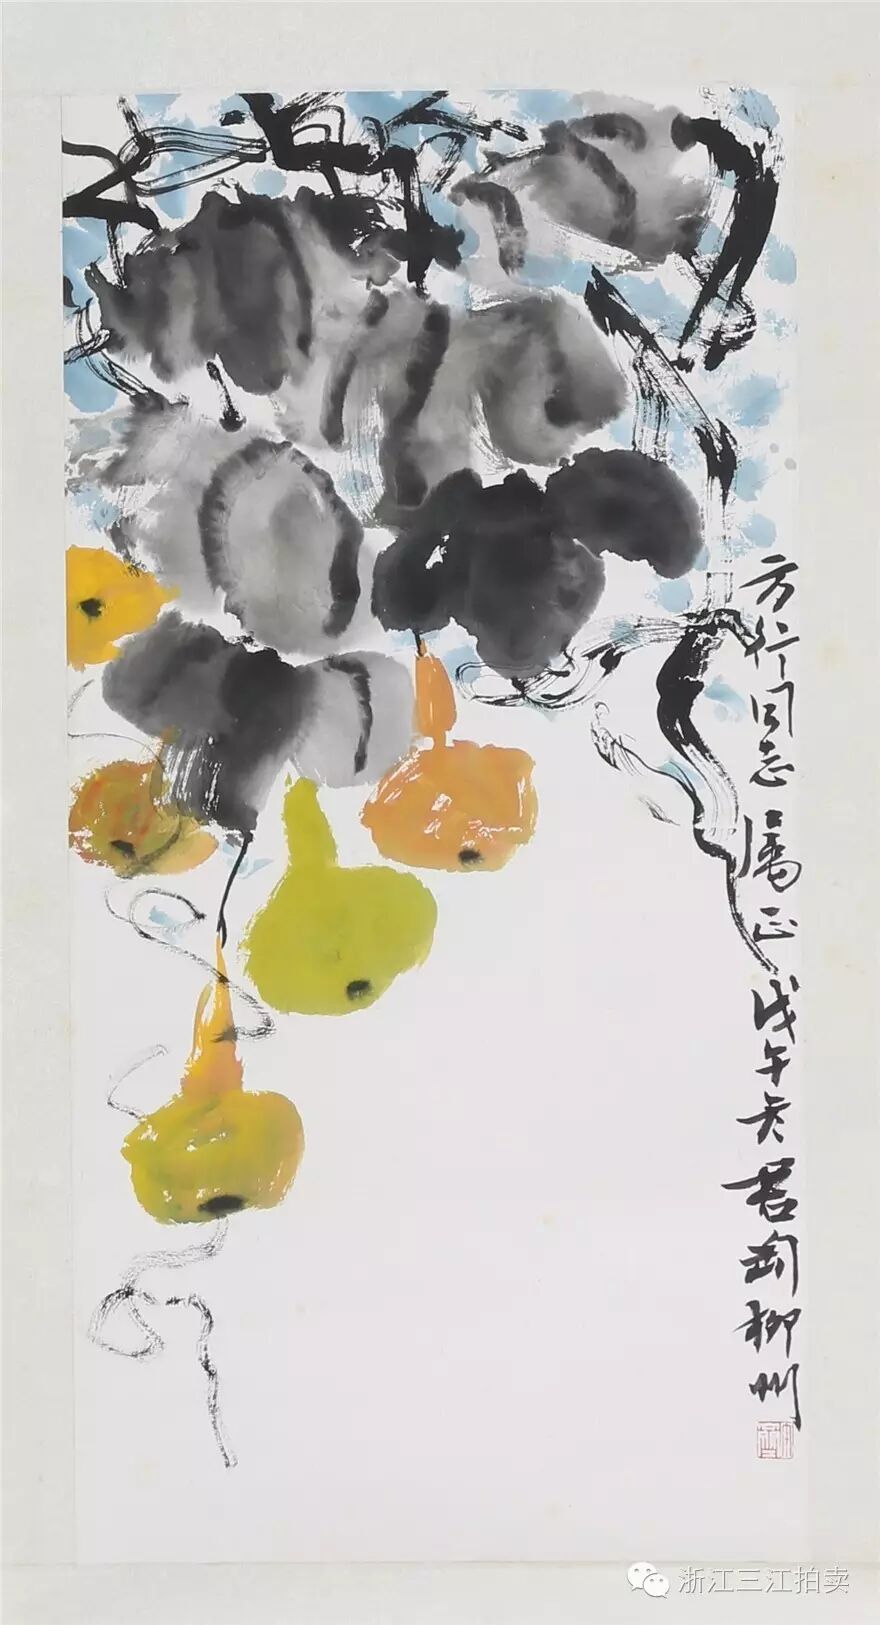 方行同志属正戊午冬君匋柳州
浙江三江拍卖